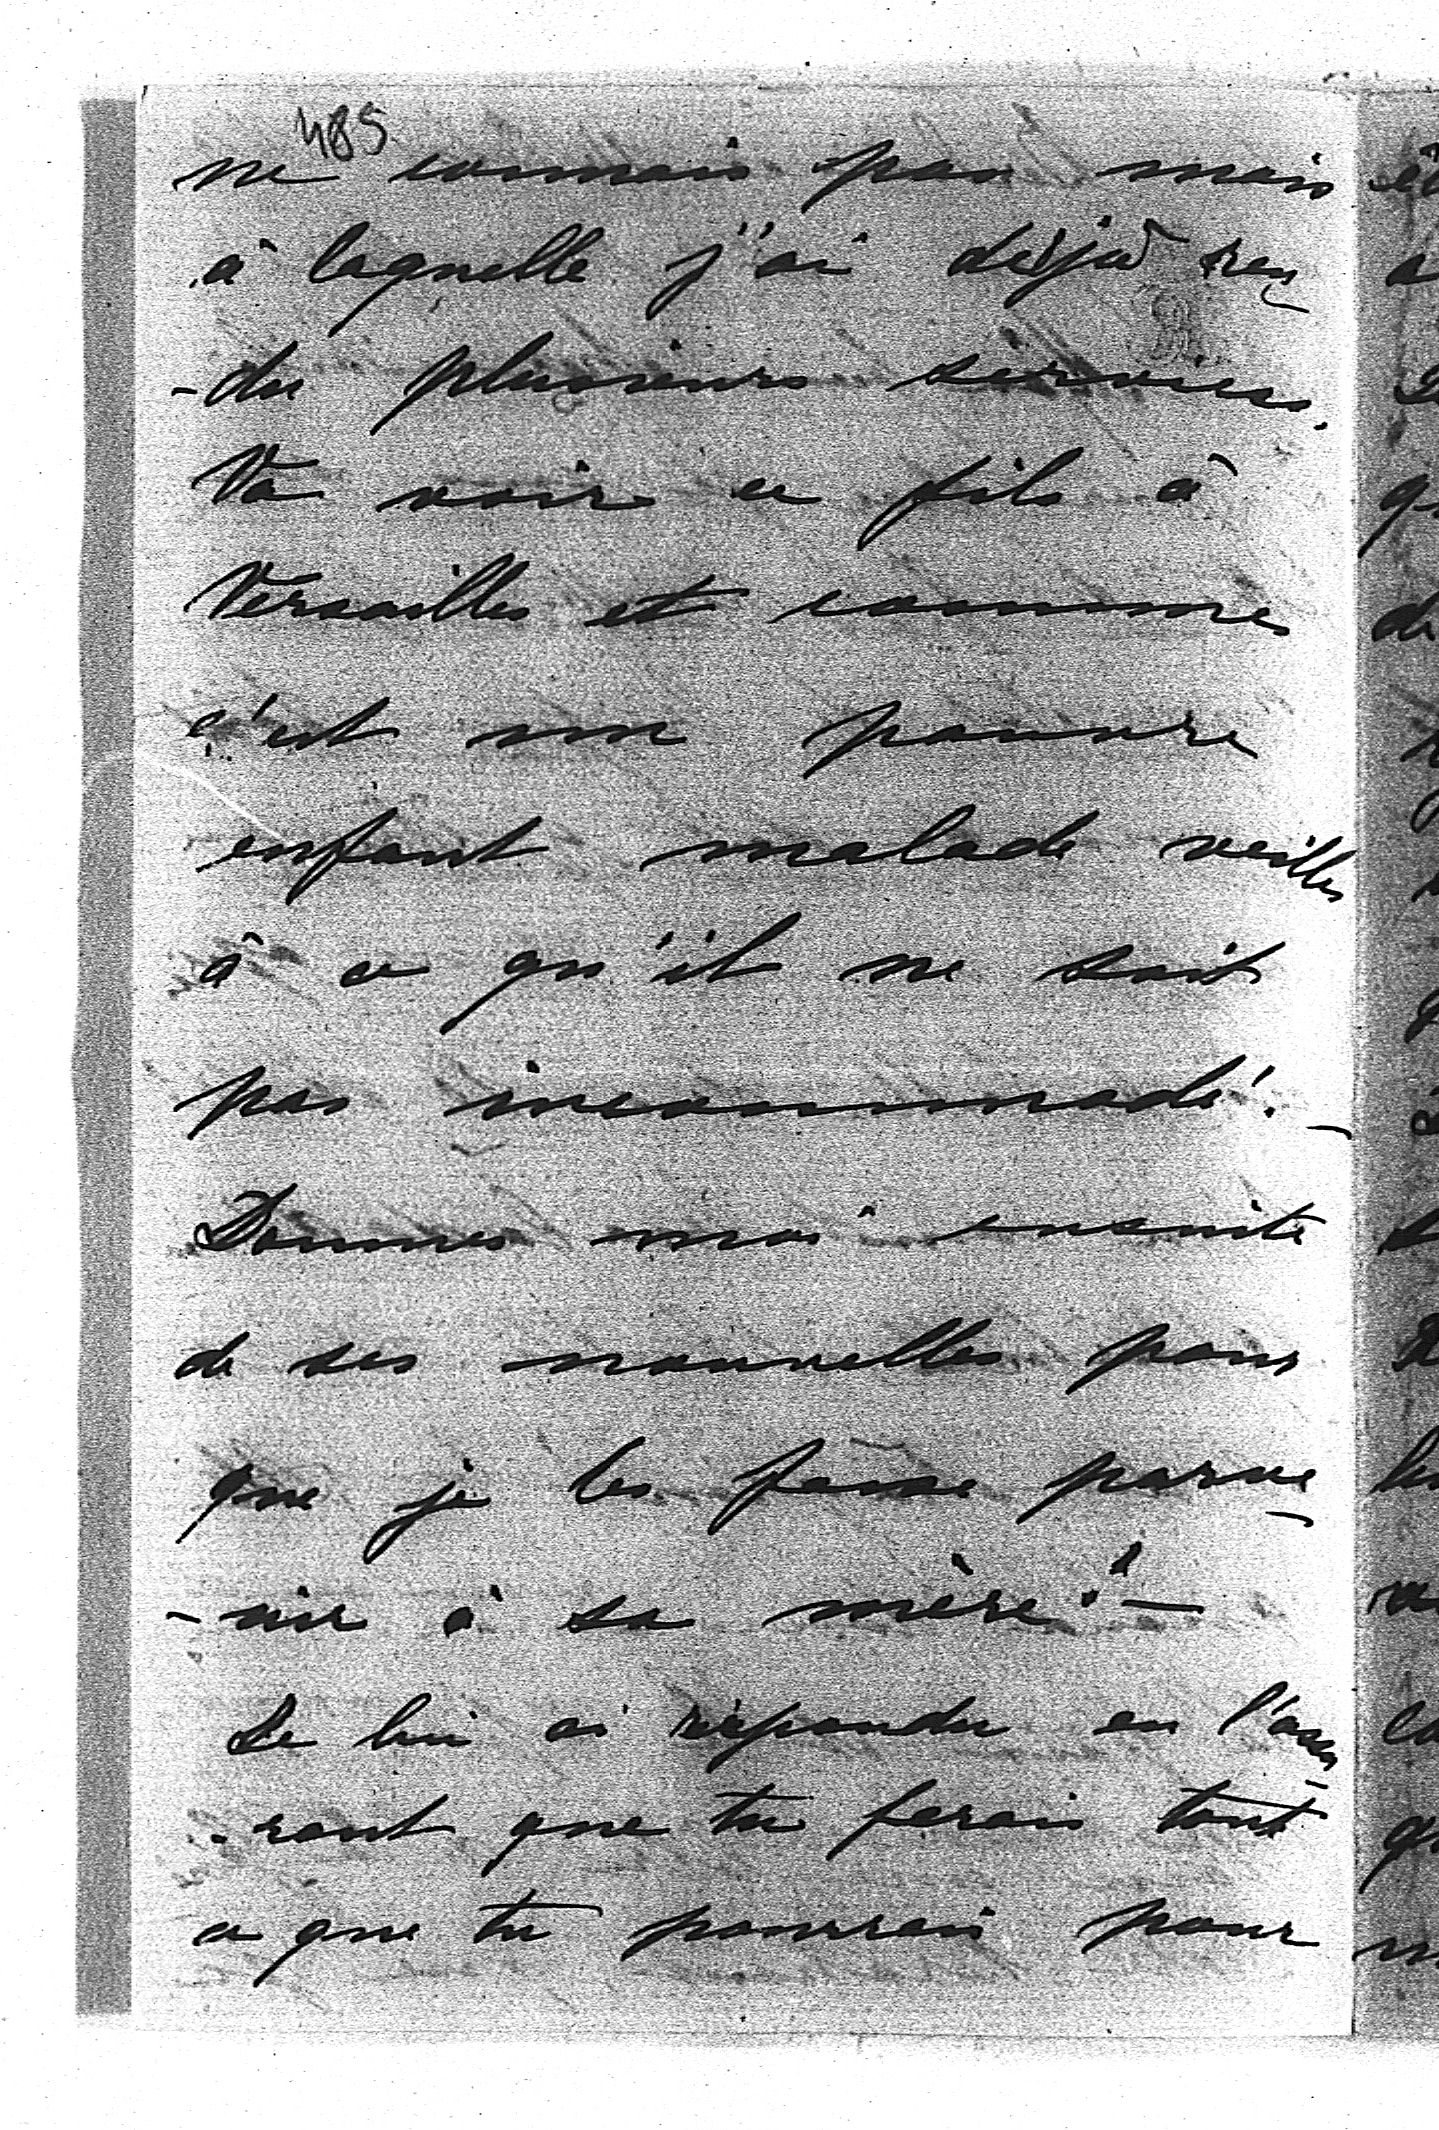 485
ne connais pas mais
à laquelle j'ai déjà ren
-du plusieurs services.
Va voir ce fils à
Versailles et comme
c'est un pauvre
enfant malade veilles
à ce qu'il ne soit
pas incommodé. -
Donnes moi ensuite
de ses nouvelles pour
que je les fasse parve
-nir à sa mère". -
Je lui ai répondu en l'assu
-rant que tu ferais tout
ce que tu pourrais pour